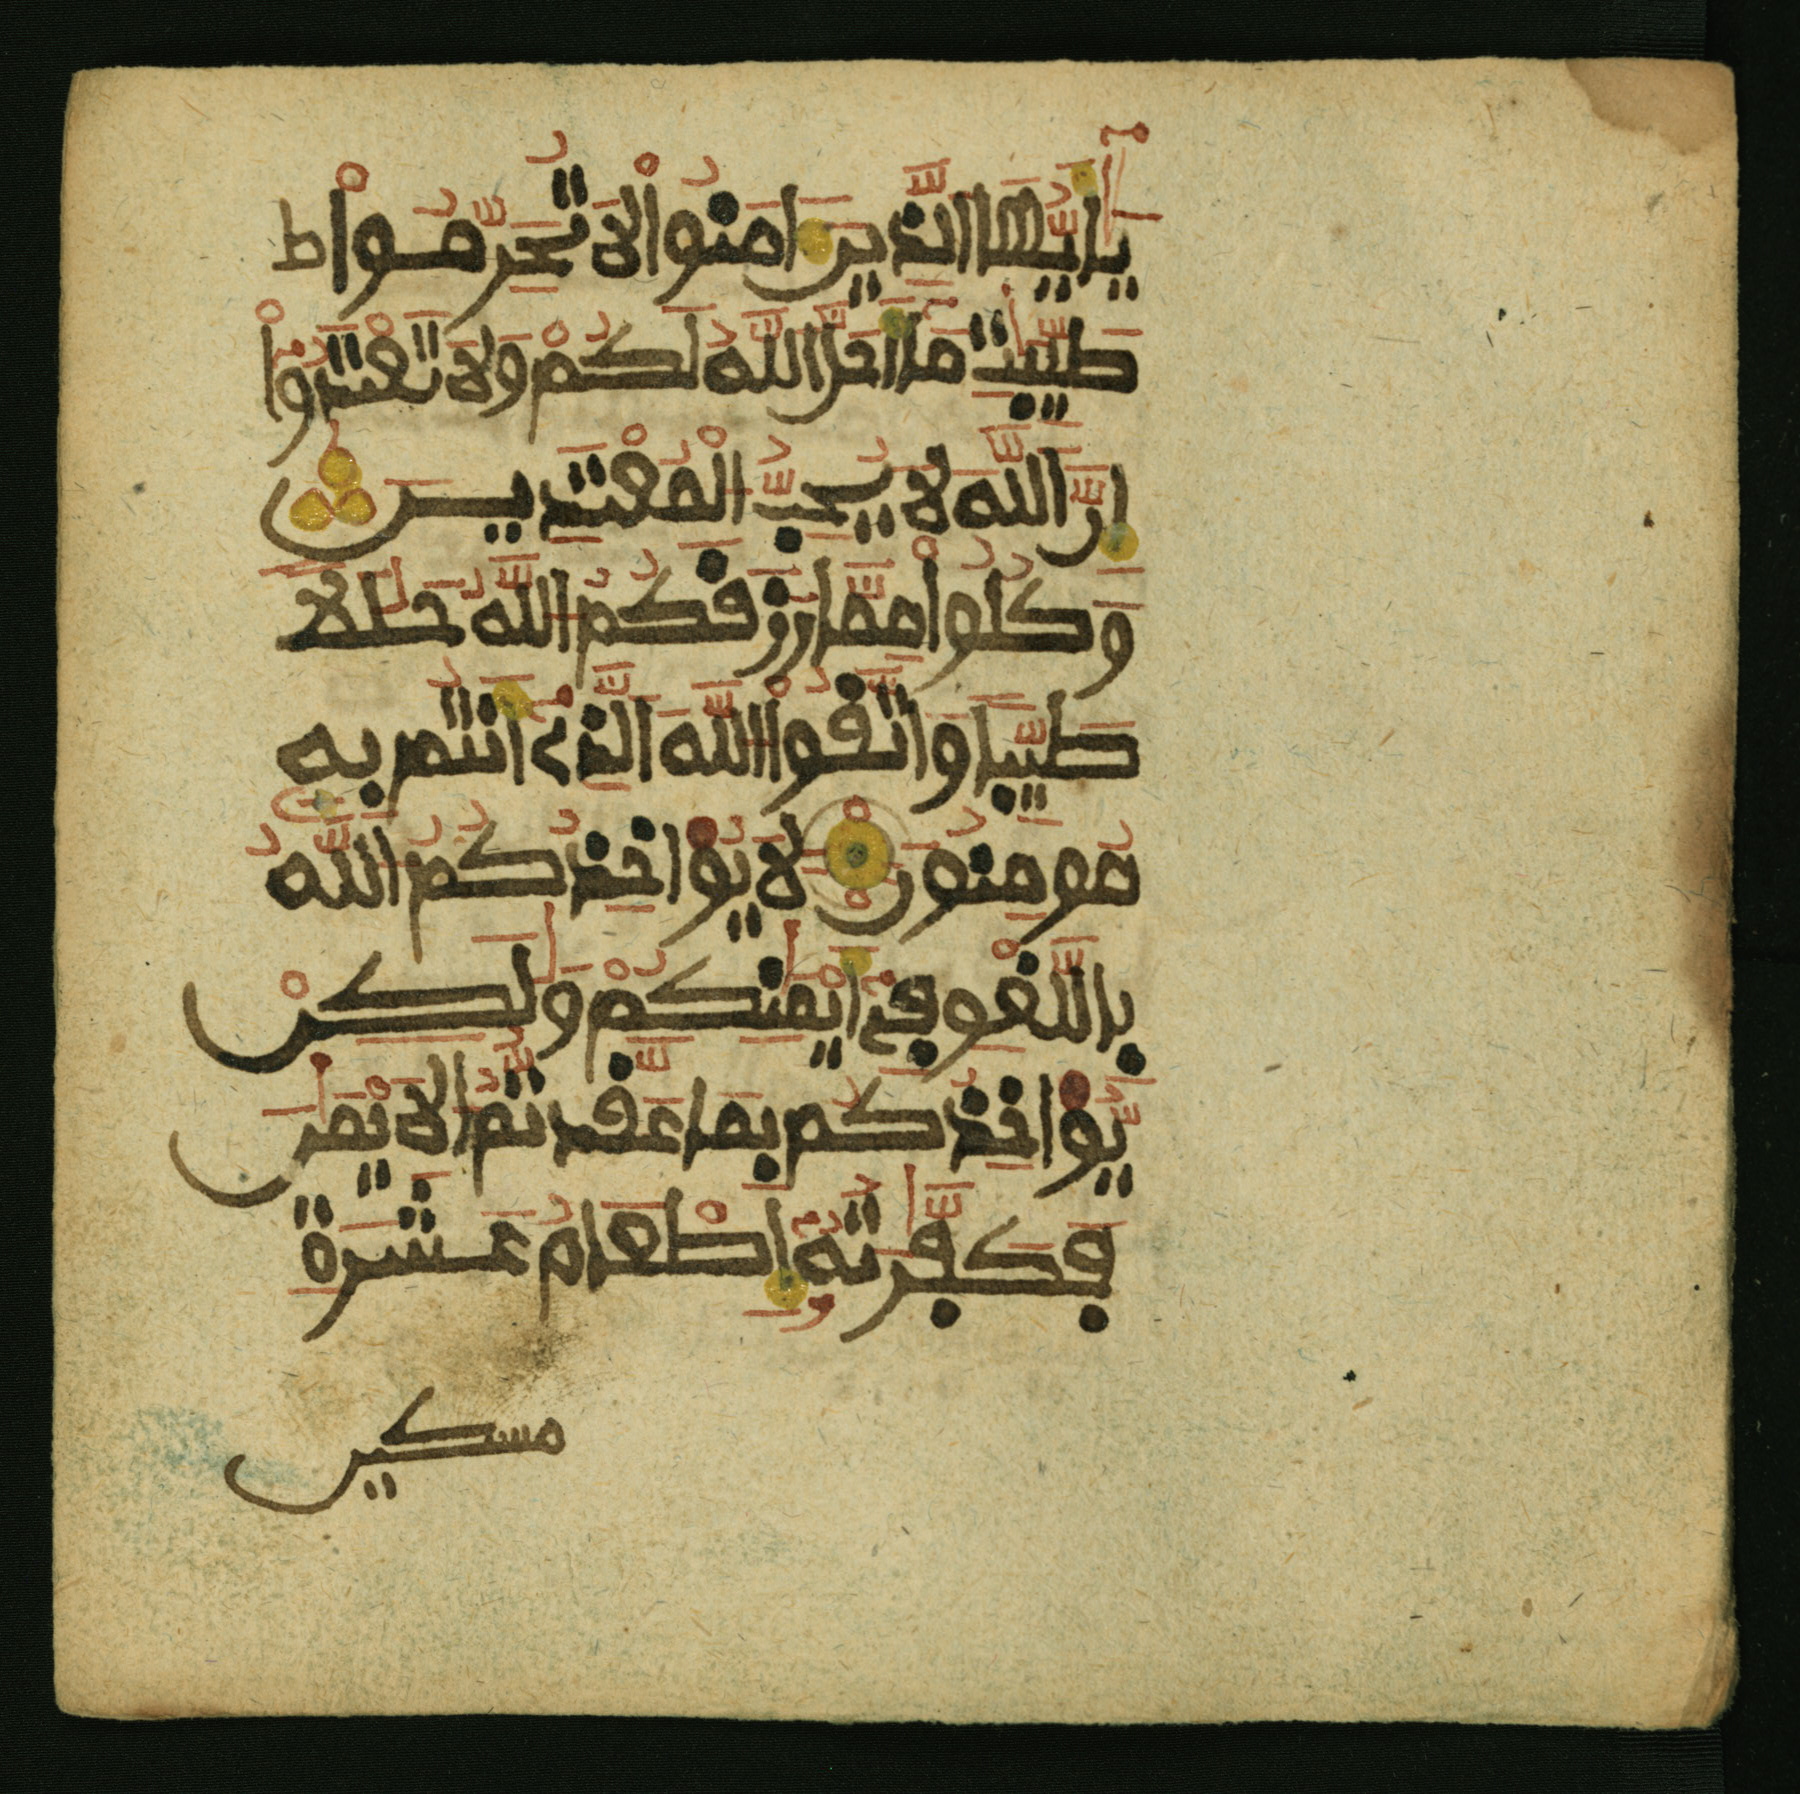 يَٰأَيُّهَا الَّذِينَ ءَامَنُواْ لَا تُحَرِّمُواْ ط
طَيِّبَٰتِ مَا أَحَلَّ اللَّهُ لَكُمْ وَلَا تَعْتَدُواْ
إِنَّ اللَّهَ لَا يُحِبُّ الْمُعْتَدِينَ
وَكُلُواْ مِمَّا رَزَقَكُمُ اللَّهُ حَلَٰلًا
طَيِّبًا وَاتَّقُواْ اللَّهَ الَّذِي أَنتُم بِهِ
مُومِنُونَ لَا يُوَاخِذُكُمُ اللَّهُ
بِاللَّغْوِ فِي أَيْمَٰنِكُمْ وَلَٰكِنْ
يُّوَاخِذُكُم بِمَا عَقَّدتُّمُ الَايْمَٰنَ
فَكَفَّٰرَتُهُ إِطْعَامُ عَشَرَةِ
مسكين